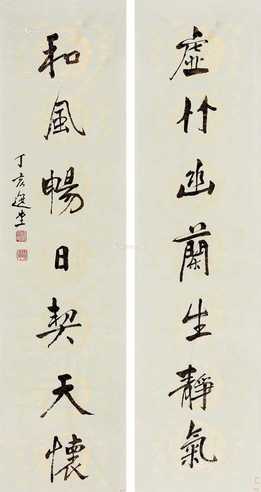 虛竹幽蘭生靜氣
和風暢日契天懷
丁亥選堂